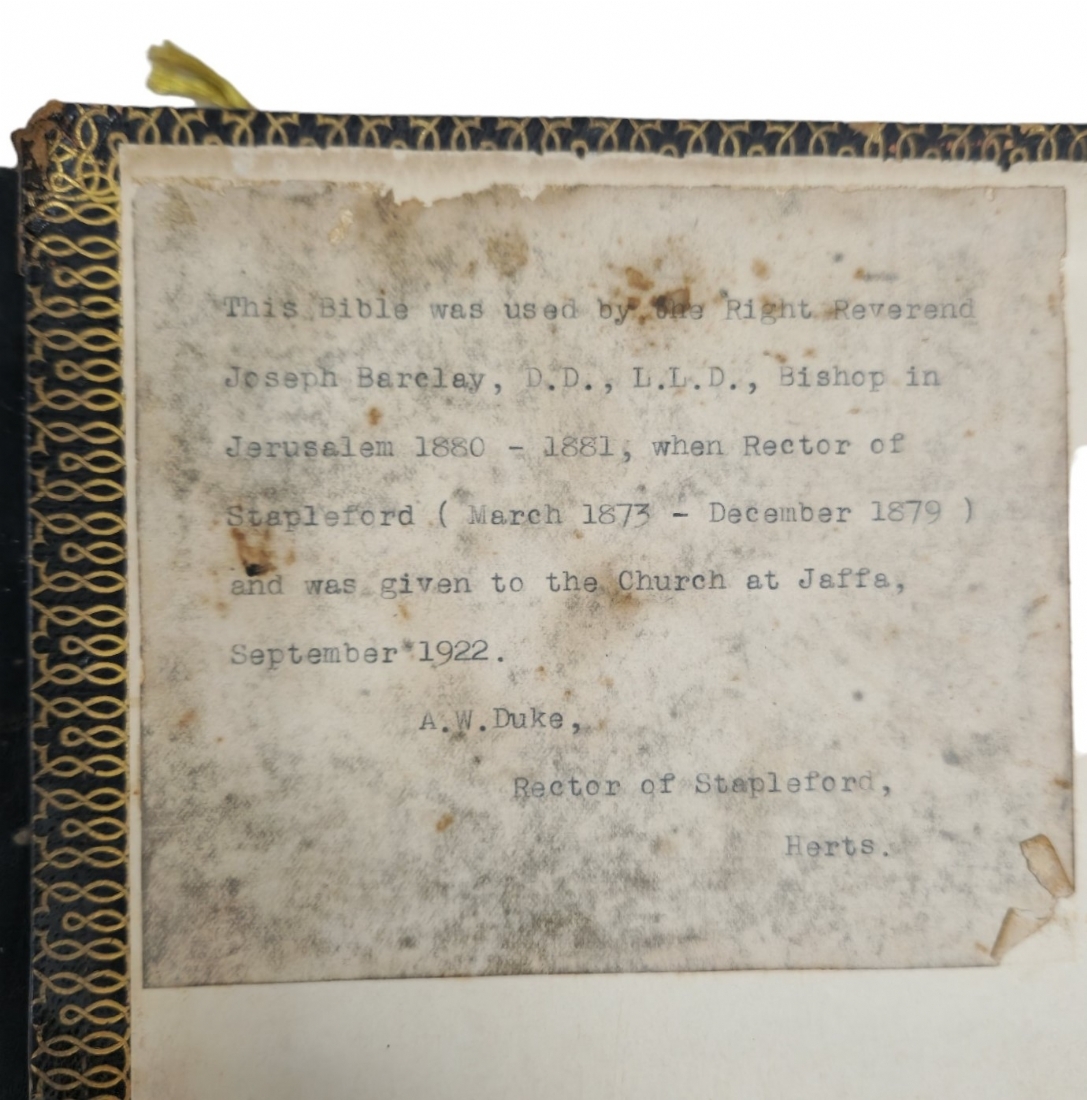 This Bible was used by the Right Reverend
Joseph Barclay, D.D., L.L.D., Bishop in
Jerusalem 1880 - 1881, when Rector of
Stapleford ( March 1873 - December 1879 )
and was given to the Church at Jaffa,
September 1922.
A.W.Duke,
Rector of Stapleford,
Herts.